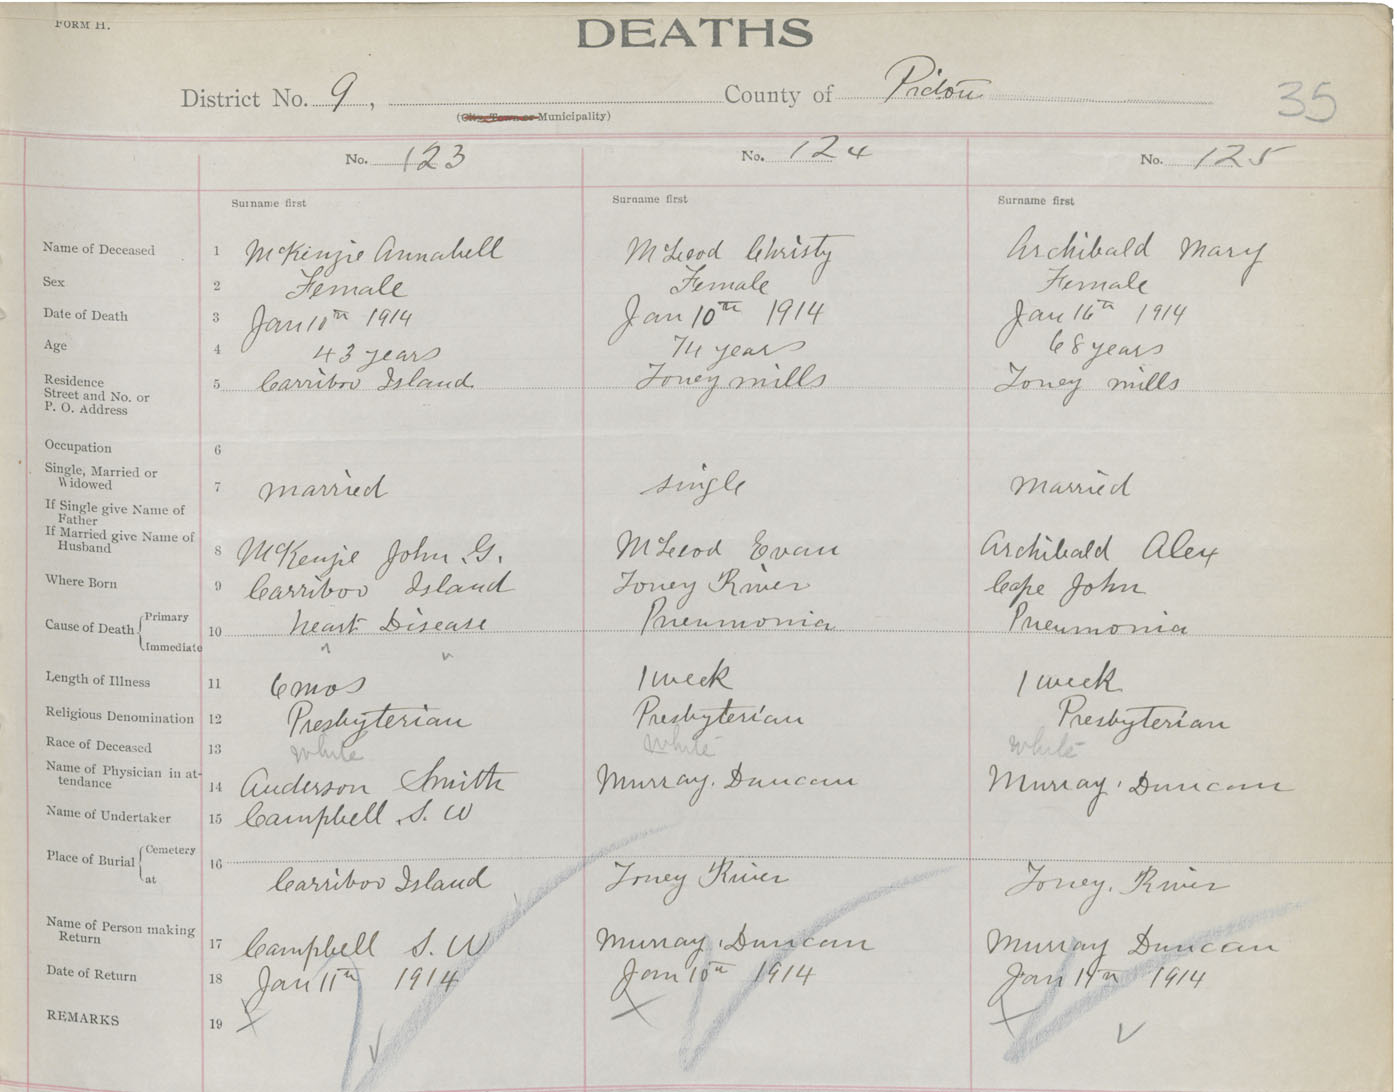 FORM H.
DEATHS
District No. 9, County of Pictou
35
(City, Town or Municipality)
No. 123 No. 124 No. 125
Surname first Surname first Surname first
Name of Deceased 1 McKenzie Annabell McLeod Christy Archibald Mary
Sex 2 Female Female Female
Date of Death 3 Jan 10th 1914 Jan 10th 1914 Jan 16th 1914
Age 4 43 years 74 years 68 years
Residence Street and No. or P. O. Address 5 Carriboo Island Toney mills Toney mills
Occupation 6
Single, Married or Widowed 7 married single married
If Single give Name of Father
If Married give Name of Husband 8 McKenzie John G. McLeod Evan Archibald Alex
Where Born 9 Carriboo Island Toney River Cape John
Cause of Death Primary Immediate 10 heart Disease Pneumonia Pneumonia
Length of Illness 11 6 mos 1 week 1 week
Religious Denomination 12 Presbyterian Presbyterian Presbyterian
Race of Deceased 13 White White White
Name of Physician in attendance 14 Anderson Smith Murray. Duncan Murray. Duncan
Name of Undertaker 15 Campbell S. W
Place of Burial Cemetery at 16 Carriboo Island Toney River Toney. River
Name of Person making Return 17 Campbell S. W Murray. Duncan Murray Duncan
Date of Return 18 Jan 11th 1914 Jan 10th 1914 Jan 1914
REMARKS 19 X X X